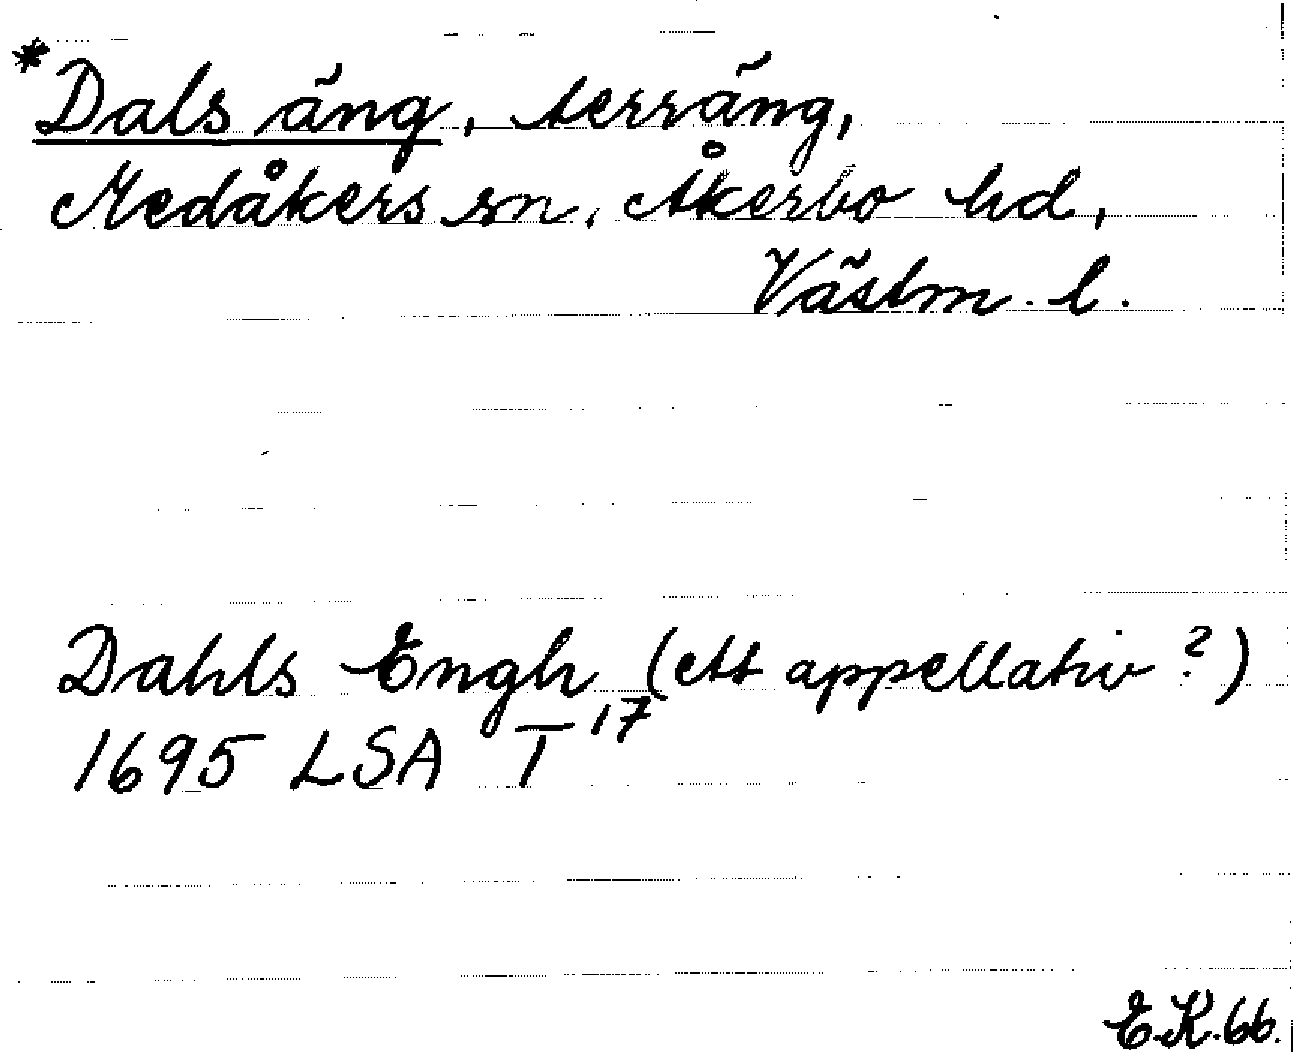 *Dals äng, terräng,
Medåkers sn, Åkerbo hd,
Västm. l.
Dahls Engh (ett appellativ?)
1695 LSA T 17
E.K.66.